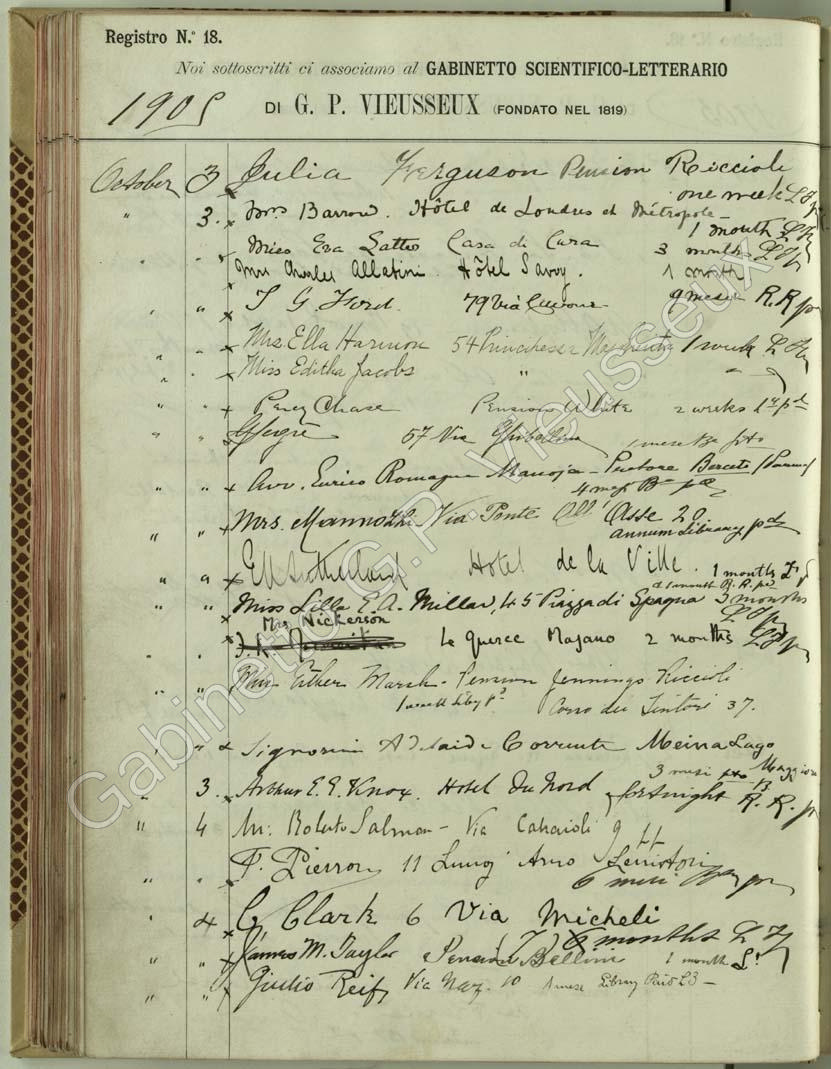 Registro N.° 18.
Noi sottoscritti ci associamo al GABINETTO SCIENTIFICO-LETTERARIO
1905 DI G. P. VIEUSSEUX (FONDATO NEL 1819)
October 3 Julia Ferguson Pension Riccioli
one week
" 3. Mrs Barrow. Hôtel de Londres et Métropole
1 month
" " Miss Eva Casa di Cura 3 months
Mrs Charles Allatini. Hôtel Savoy. 1 month
" " G. Ford. 79 Via 9 mesi R. R
" " Mrs. Ella Harmon 54 Principessa Margherita 1 week
" " Miss Editha Jacobs "
" " Percy Chase Pension White 2 weeks
" " 57 Via Ghibellina 1 mese
" " Avv. Enrico Romagna Manoja - Pretore Berceto
4 mesi
" " Mrs. Via Ponte All' Asse 20
annum Library pd
" " Sutherland Hotel de la Ville. 1 months
1 month R. R. pd
" " Miss Lilla E. A. Millar, 45 Piazza di Spagna 3 months
Mrs Nickerson
" Le Querce Majano 2 months
" " Miss Esther Marsh - Pension Jennings Riccioli
1 week Corso dei Tintori 37.
" " Signorina Adelaide Corrente Meina Lago
Maggiore
3 mesi
" 3. Arthur E. E. Knox. Hotel du Nord fortnight R. R.
" 4 Mr. Roberto Salmon - Via 9
" " F. Pierron 11 Lung' Arno Serristori
6 mesi
" 4 G. Clark 6 Via Micheli
6 months
" " James M. Taylor Pension Bellini 1 month
" " Giulio Reif Via Naz. 10 1 mese Library Paid L3 -
Gabinetto G.P. Vieusseux